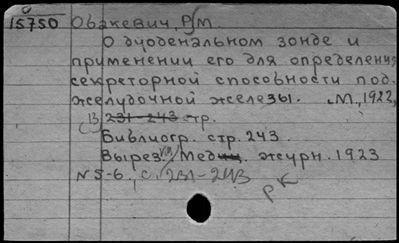 15750 Обакевич, Р.М.
О дуоденальном зонде и
применении его для определения
секреторной способности под.
желудочной железы. М., 1922,
(13) 231-243 стр.
Библиогр. стр. 243.
Вырез. Мед. журн. 1923
№ 5-6. с. 231-243
рк